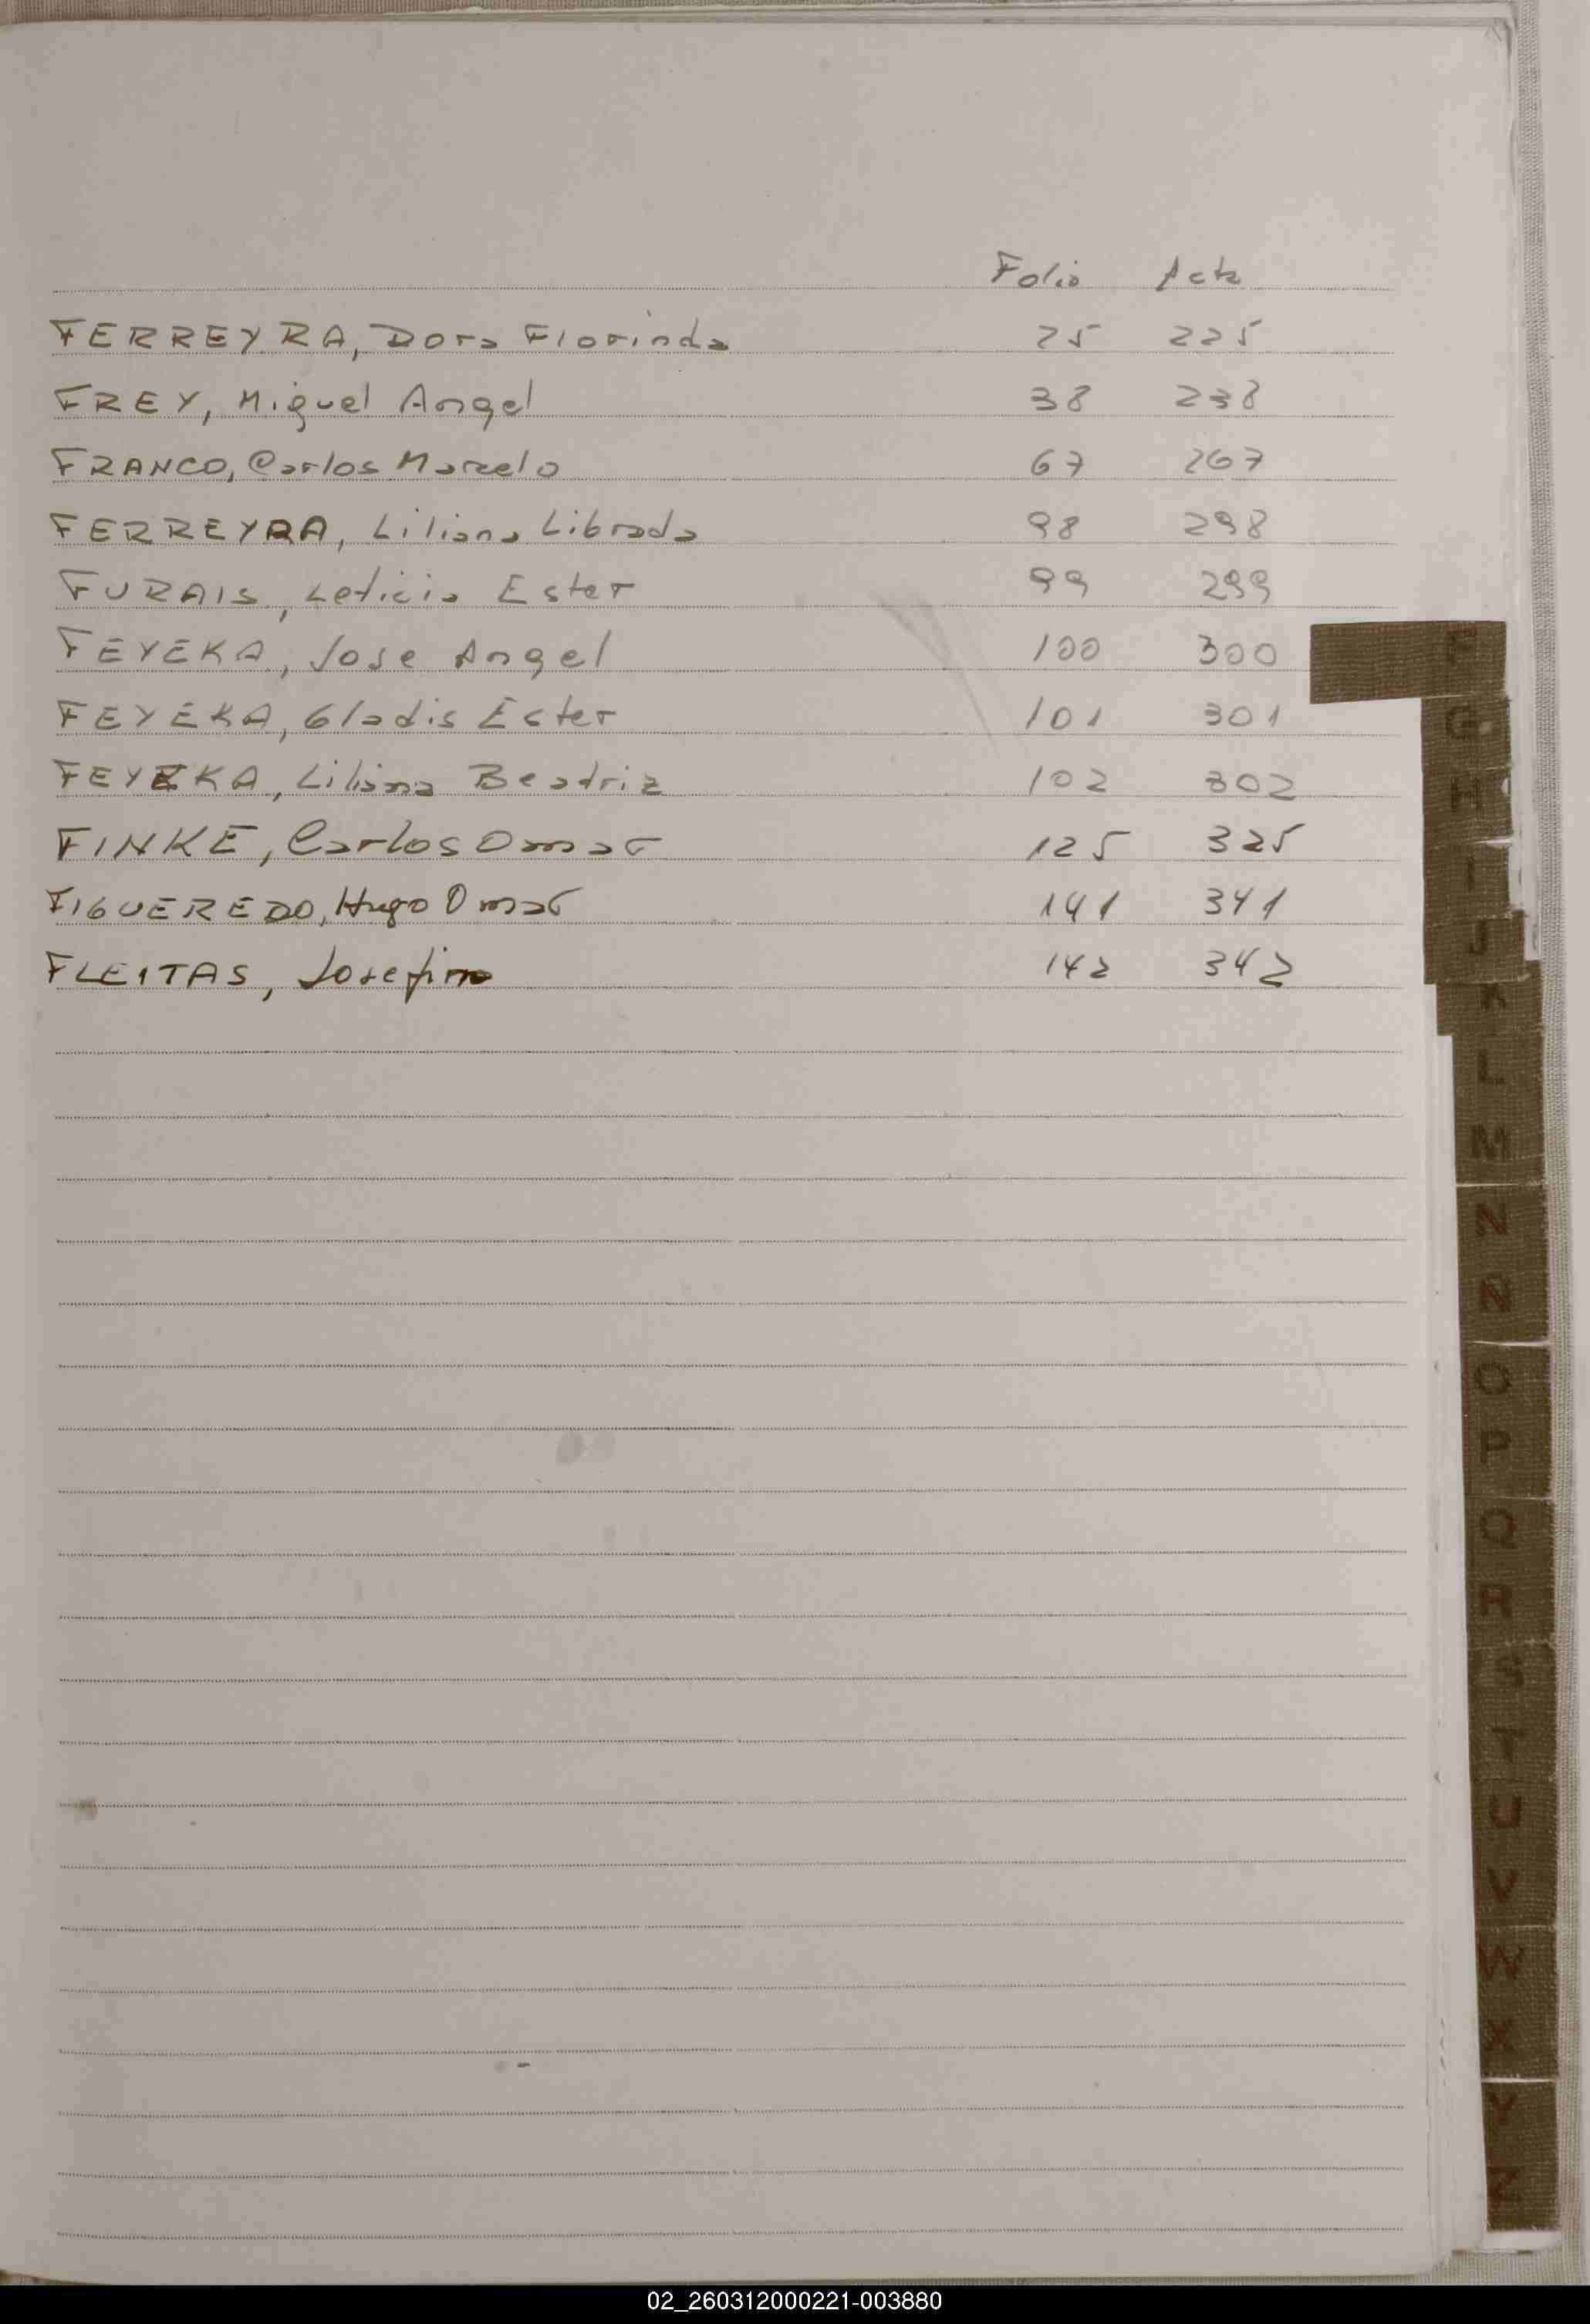 Folio Acta
FERREYRA, Dora Florinda 25 225
FREY, Miguel Angel 38 238
FRANCO, Carlos Marcelo 67 267
FERREYRA, Liliana Librada 98 298
FURAIS, Leticia Ester 99 299
FEYEKA, Jose Angel 100 300
FEYEKA, Gladis Ester 101 301
FEYEKA, Liliana Beatriz 102 302
FINKE, Carlos Omar 125 325
FIGUEREDO, Hugo Omar 141 341
FLEITAS, Josefina 142 342
F
G
H
I
J
K
L
M
N
Ñ
O
P
Q
R
S
T
U
V
W
X
Y
Z
02_260312000221-003880